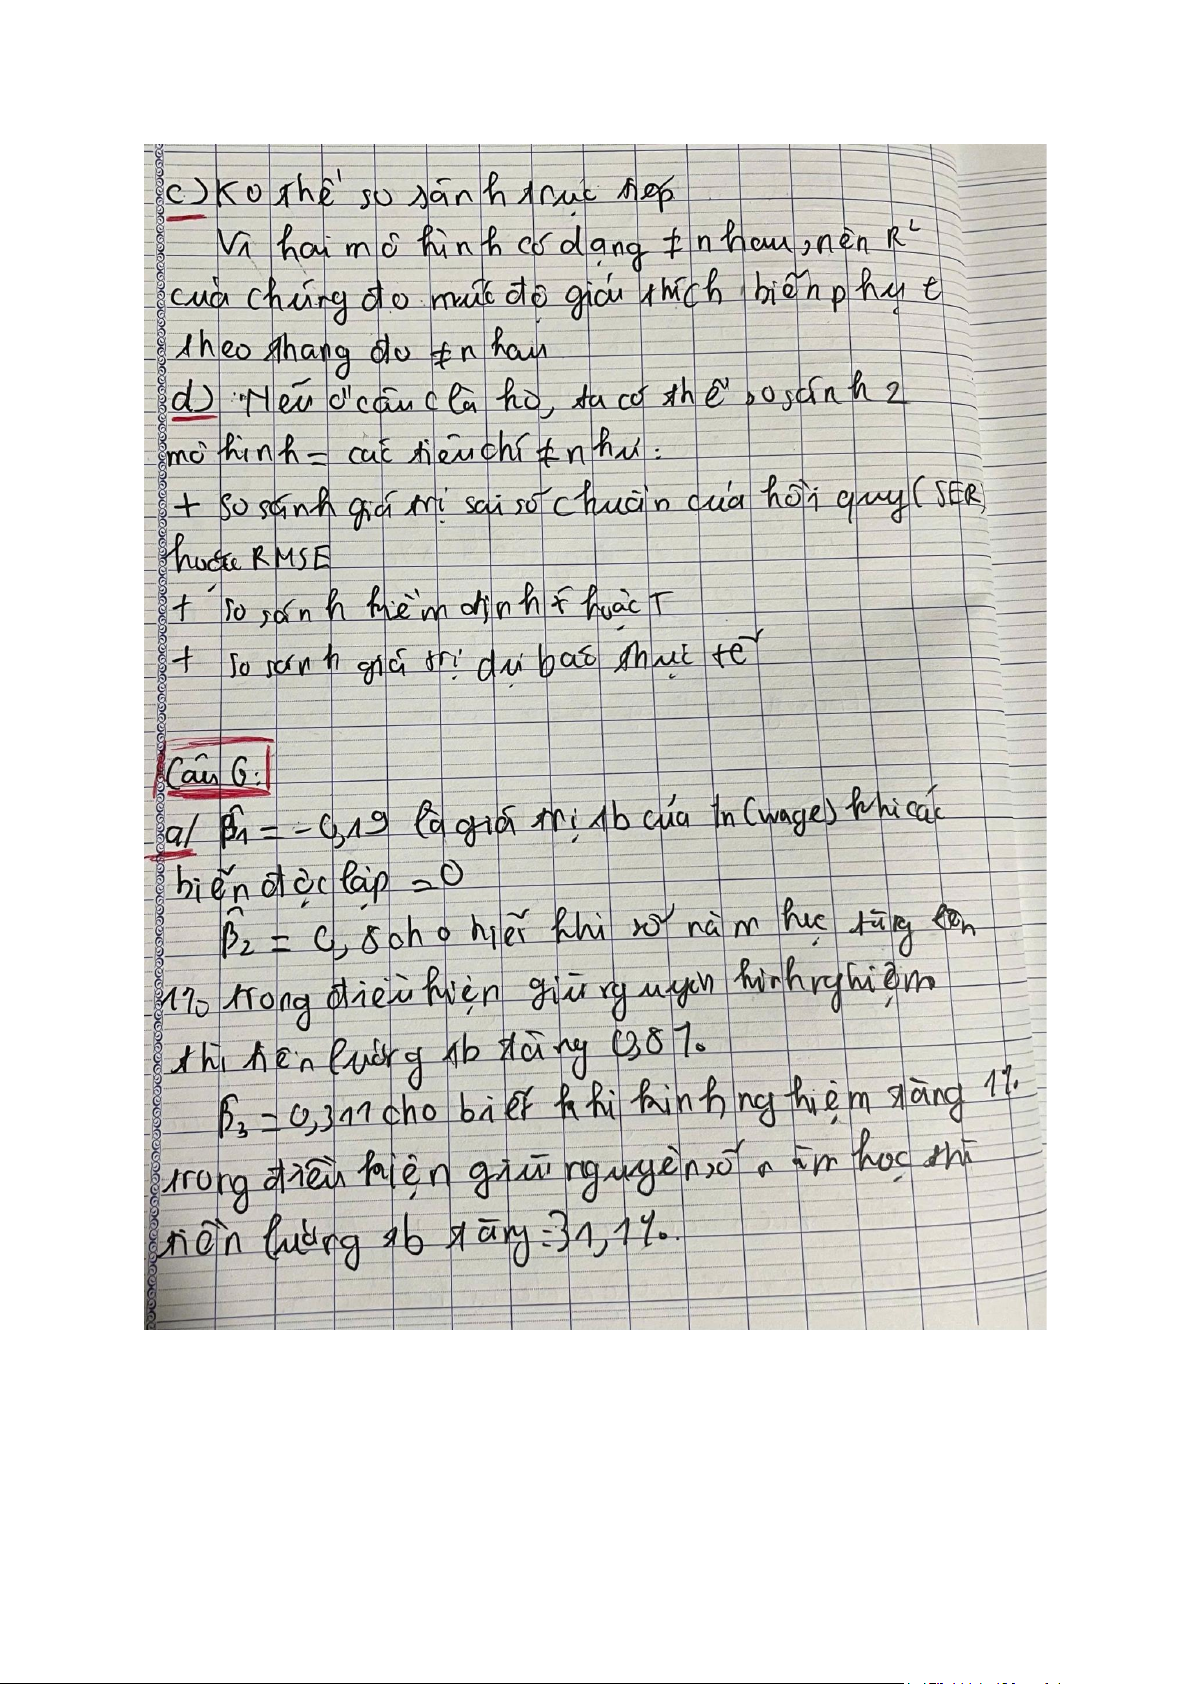 c) Ko thể so sánh trực tiếp
Vì hai mô hình có dạng ≠ nhau, nên R²
của chúng đo mức độ giải thích biến phụ t
theo thang đo ≠ nhau
d) Nếu ở câu c là ko, ta có thể so sánh 2
mô hình = các tiêu chí ≠ như:
+ So sánh giá trị sai số chuẩn của hồi quy (SER)
hoặc RMSE
+ So sánh kiểm định F hoặc T
+ So sánh giá trị dự báo thực tế
Câu 6:
a/ β̂1 = -0,19 là giá trị tb của ln(wage) khi các
biến độc lập = 0
β̂2 = 0,8 cho biết khi số năm học tăng lên
1% trong điều kiện giữ nguyên kinh nghiệm
thì tiền lương tb tăng 0,8%.
β̂3 = 0,311 cho biết khi kinh nghiệm tăng 1%
trong điều kiện giữ nguyên số năm học thì
tiền lương tb tăng = 31,1%.